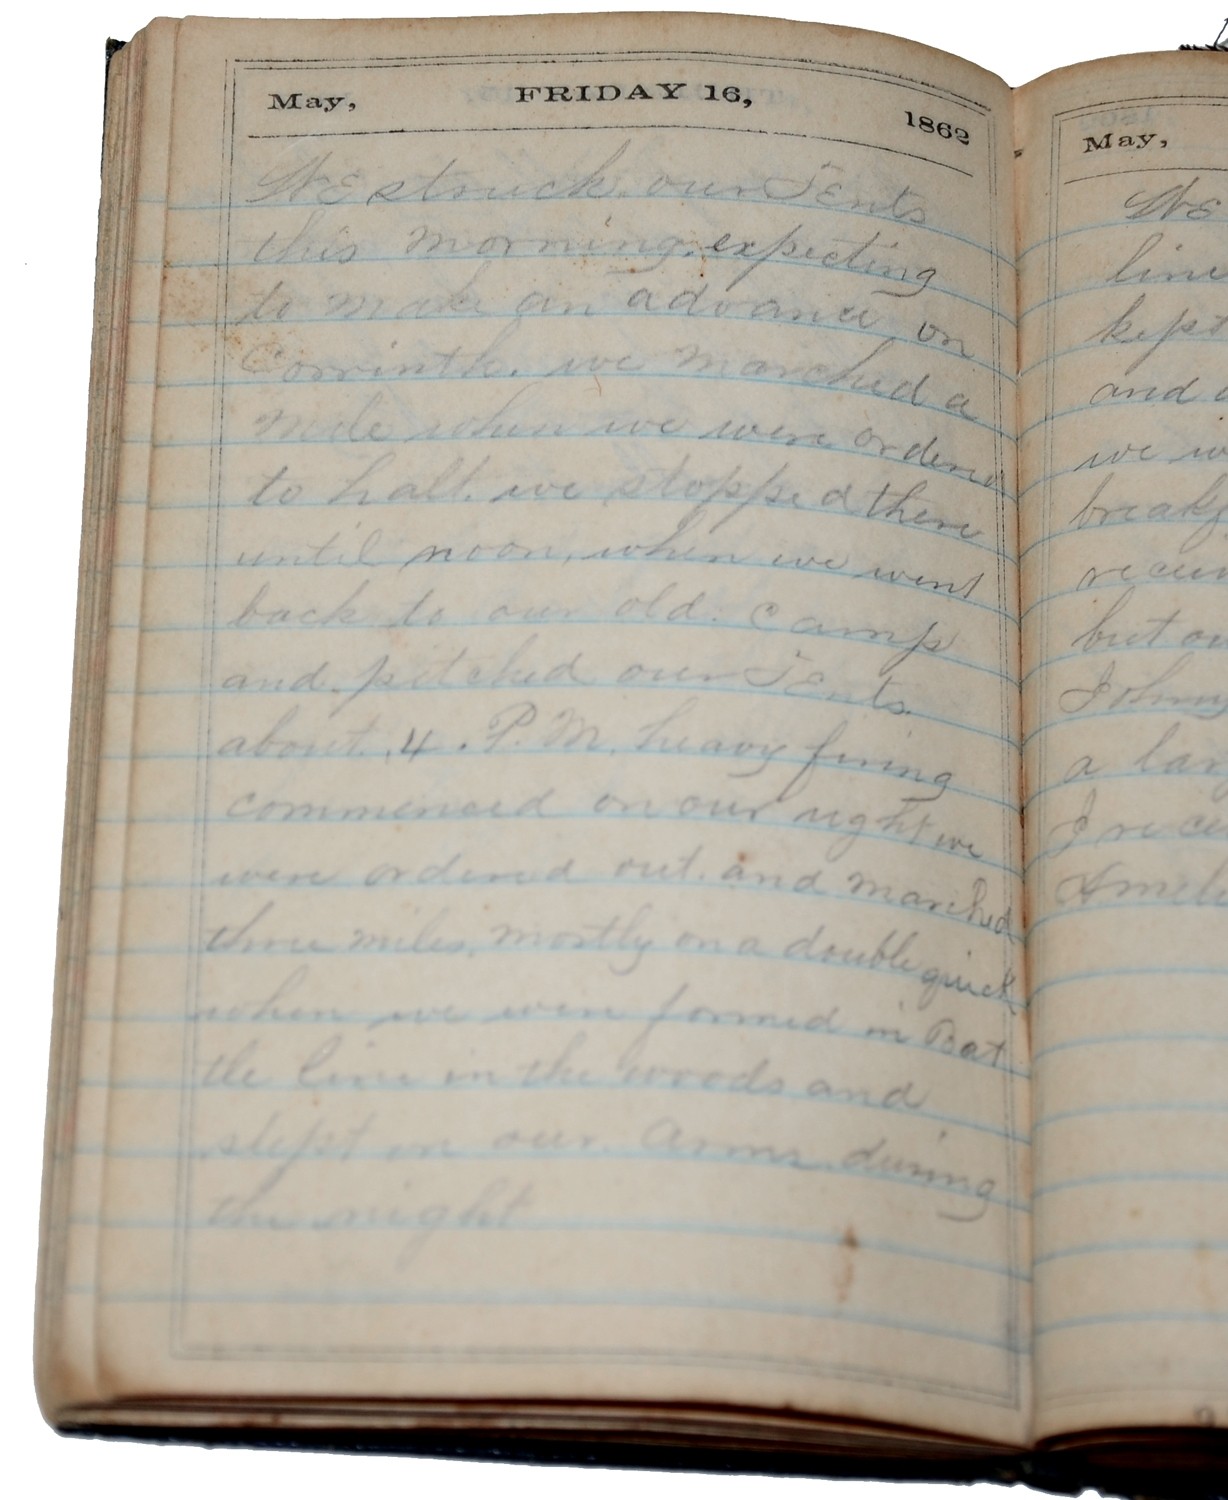 May, FRIDAY 16, 1862
WE struck our TEnts
this morning, expecting
to make an advance on
Corrinth. we marched a
mile when we were ordered
to halt. we stopped there
until noon, when we went
back to our old camp
and pitched our TEnts.
about 4. P.M. heavy firing
commenced on our right we
were ordered out and marched
three miles, mostly on a double quick
when we were formed in Bat
tle line in the woods and
slept on our Arms during
the night
May,
WE
line
kept
and
we
but
Johnny
a
I